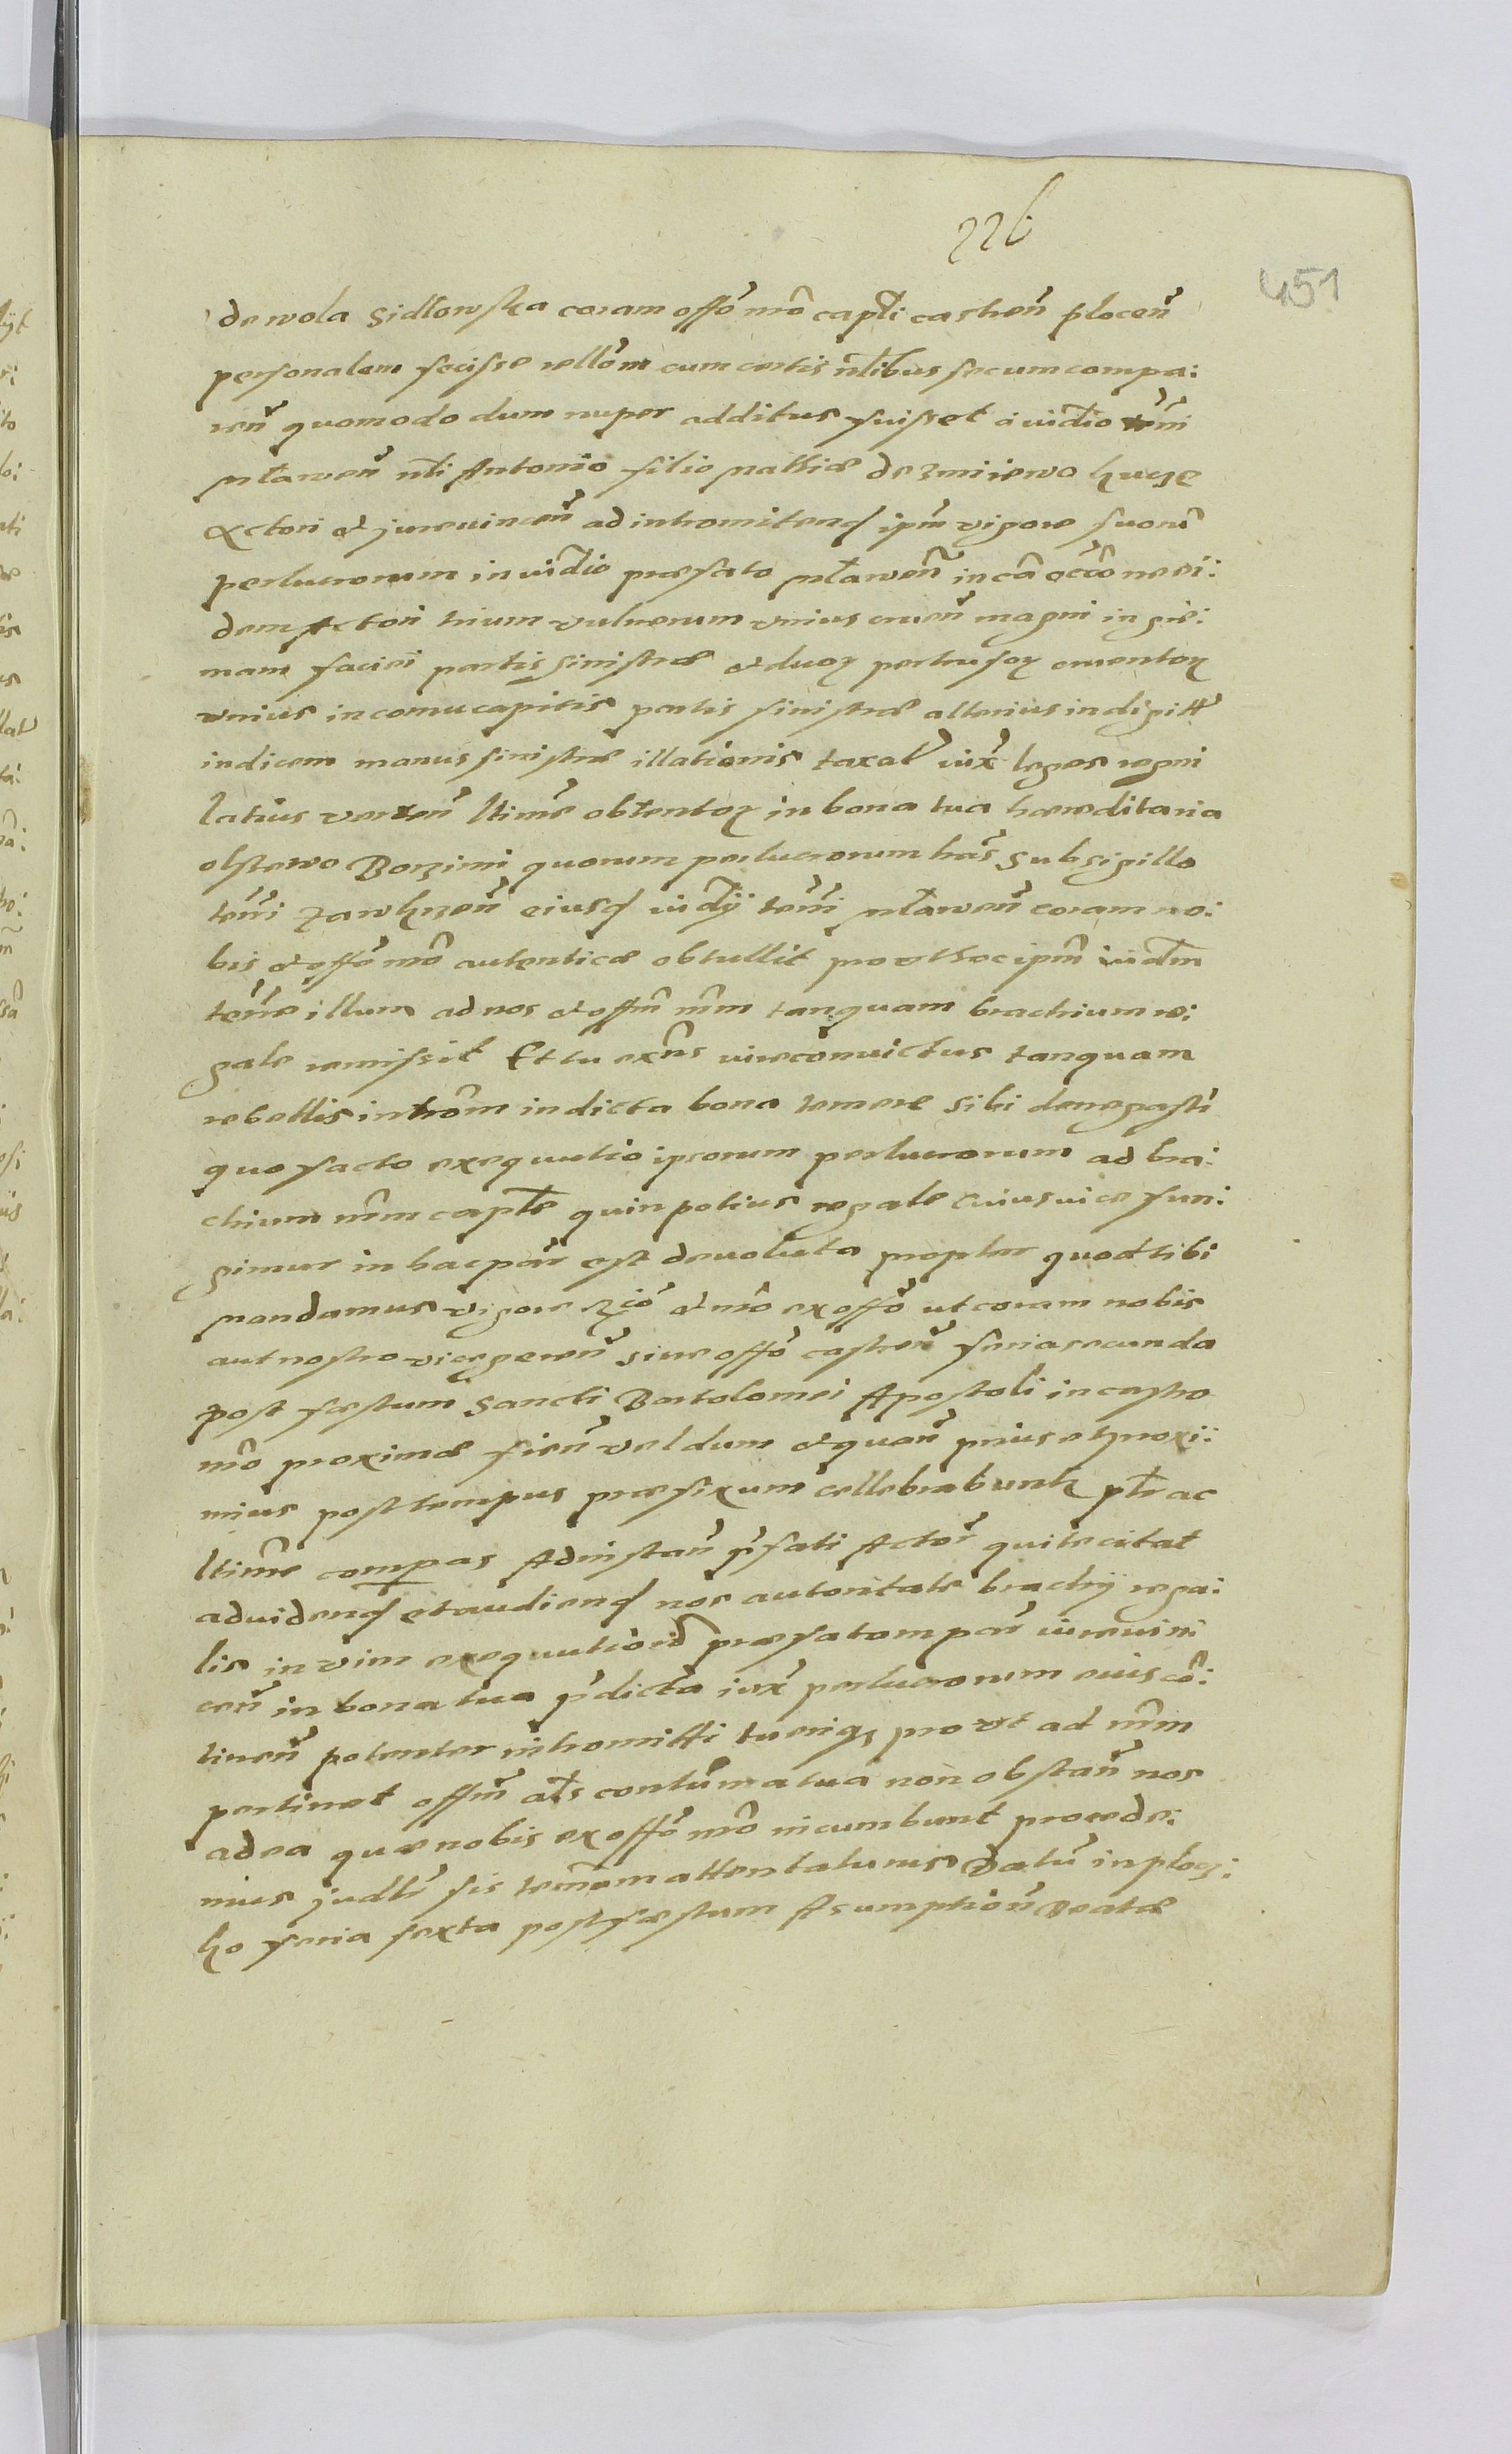 226
451
de wola Sidlowska coram offō nrō captli castreñ ploceñ
personalem fecisse rellōm cum certis nłibus secum compa:
reñ quomodo dum nuper additus fuisset a iudīo trñi
Mławeñ nłi Antonio filio Mathiæ de zmiiewo kucze
Actori et jurevinceñ ad intromitend ipm̃ vigore suorū
perlucrorum in iudīo præfato Mławeñ in cā occōne ei:
dem Actori trium vulnerum vnius crueñ magni in gē:
nam faciei partis sinistræ et duoꝝ pertusoꝝ cruentoꝝ
vnius in cornu capitis partis sinistræ alterius in digitū
indicem manus sinistræ illationis taxat iuxͣ leges regni
latius verteñ ltime obtentoꝝ in bona tua hæreditaria
olszewo Borzimi quorum perlucrorum hãs sub sigillo
trñi zawkrzeñ eiusd iudīj trñi Mławeñ coram no:
bis et offō nrō autenticæ obtullit prout hoc ipm̃ iudīm
trñe illum ad nos et offm̃ nrm̃ tanquam brachium re:
gale remissit Et tu exñs iure convictus tanquam
rebellis introm̃ in dicta bona temere sibi denegasti
quo facto exequutio ipsorum perlucrorum ad bra:
chium nrm̃ captle quin potius regale cuius vice fun:
gimur in hac par̃ est devoluta propter quod tibi
mandamus vigore Rgiō et nrō ex offō ut coram nobis
aut nostro vicegereñ sive offō castreñ feria secunda
post festum Sancti Bartolomei Apostoli in castro
nrō proximæ fieñ vel dum et quañ prius et proxi:
mius post tempus præfixum cellebrabuntꝝ ptłr ac
ltime compas Ad instañ p̃fati Actor̃ qui te citat
ad vidend et audiend nos autoritate brachij rega:
lis in vim exequutionis præfatam par̃ iurevin
ceñ in bona tua p̃dicta iuxͣ perlucrorum eius cō:
tineñ potenter intromitti tueriqꝫ prout ad nrm̃
pertinet offm̃ ałs contum̃a tua non obstañ nos
ad ea quæ nobis ex offō nrō incumbunt procede:
mus judłr sis term̃em attentaturus Datū in plocz:
ko feria sexta post festum Asumptioñ Beatæ